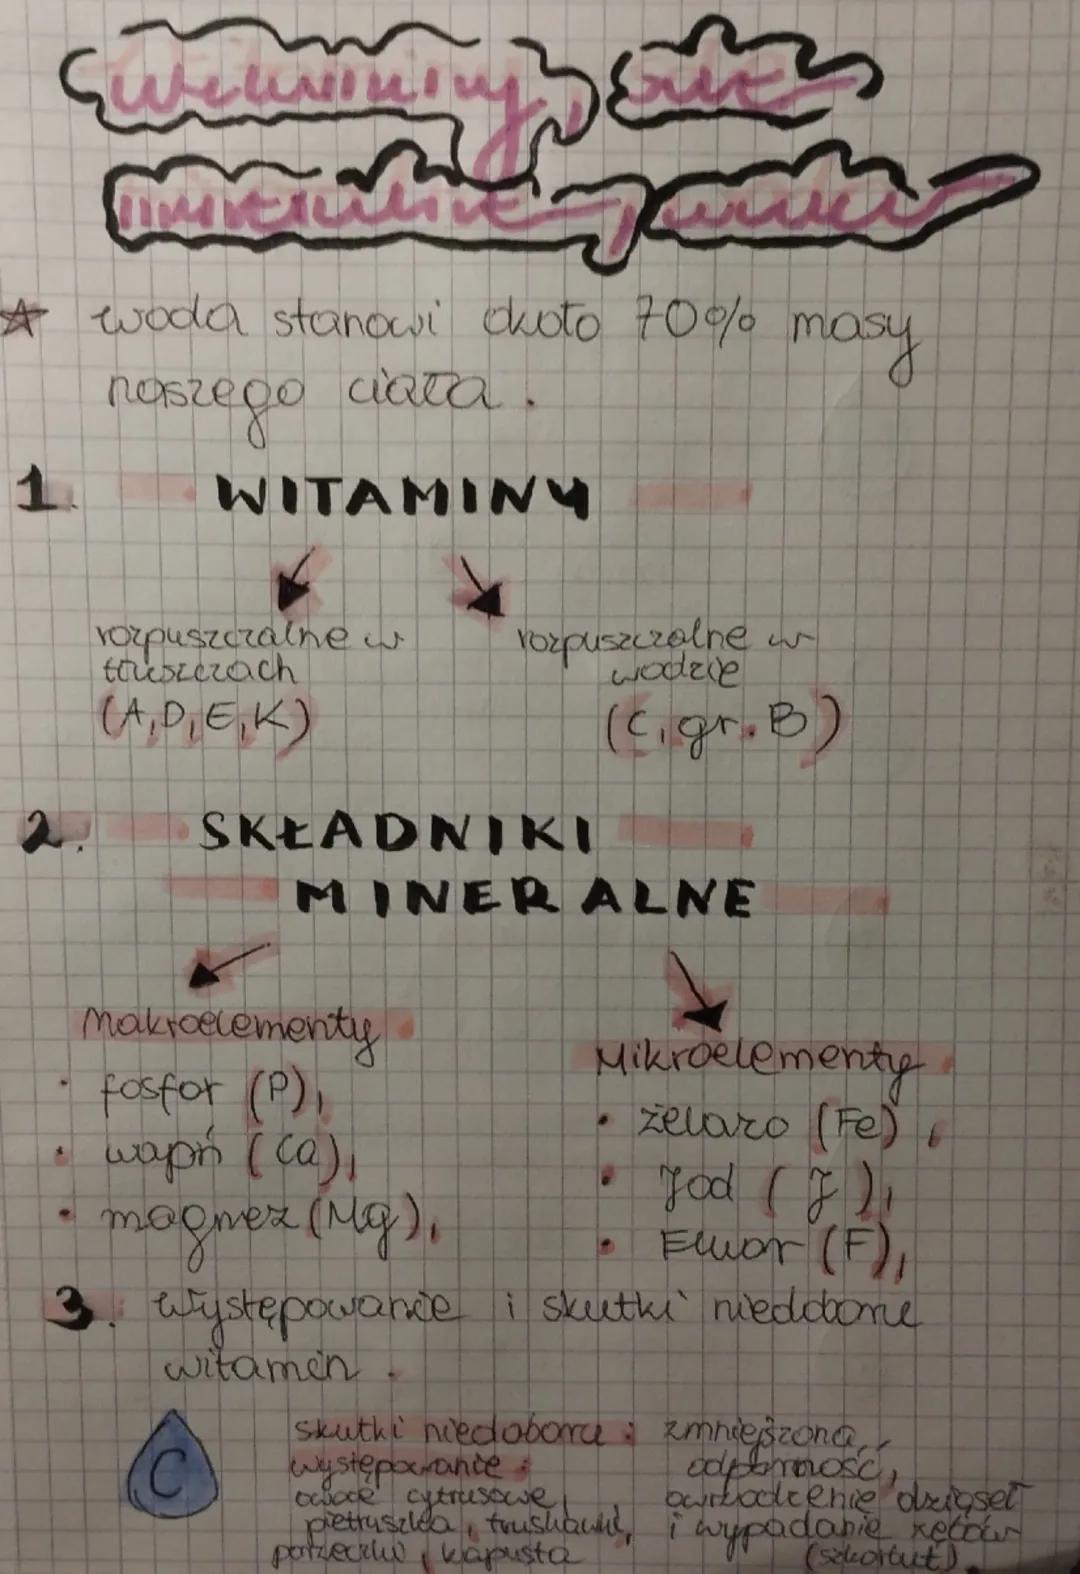 Witaminy, sole
mineralne, woda
☆ woda stanowi około 70% masy
naszego ciała.
1. WITAMINY
rozpuszczalne w
tłuszczach
(A, D, E, K)
rozpuszczalne w
wodzie
(C, gr. B)
2. SKŁADNIKI
MINERALNE
Makroelementy
• fosfor (P),
• wapń (Ca),
• magnez (Mg),
Mikroelementy
• żelazo (Fe),
• Jod (J),
• Fluor (F),
3. Występowanie i skutki niedoboru
witamin.
C
skutki niedoboru: zmniejszona
odporność,
owrzodzenie dziąseł
i wypadanie zębów
(szkorbut).
występowanie:
owoce cytrusowe,
pietruszka, truskawki,
porzeczki, kapusta